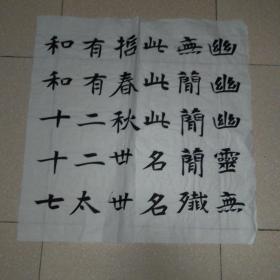 幽幽幽靈無
無簡簡簡殲
此此此名名
哲春秋世世
有有二二太
和和十十七